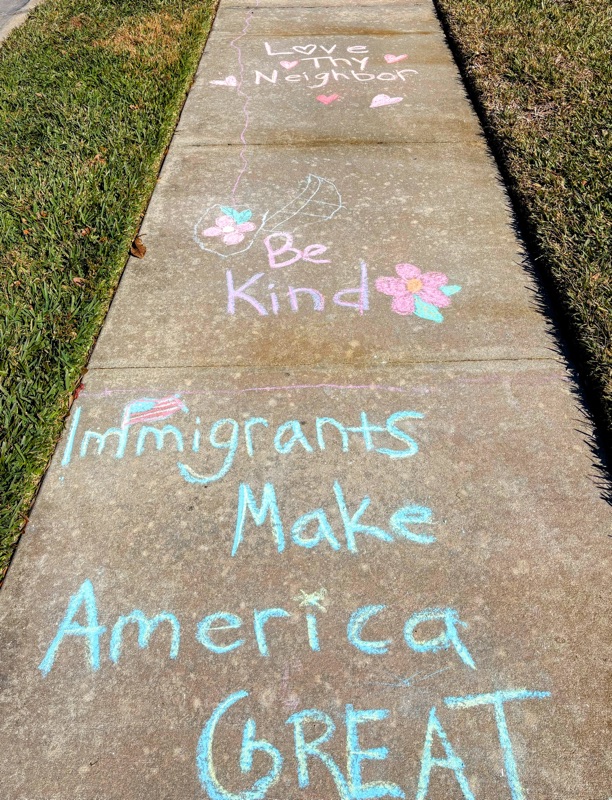 Love
Thy
Neighbor
Be
Kind
Immigrants
Make
America
GREAT